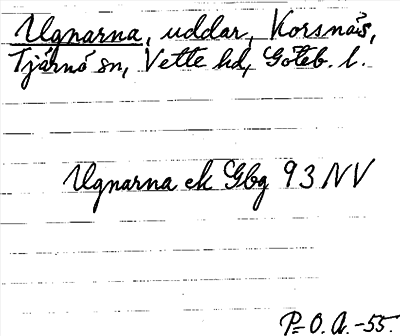 Ugnarna, uddar, Korsnäs,
Tjärnö sn, Vette hd, Göteb. l.
Ugnarna ek Gbg 93 NV
P=O. A. -55.